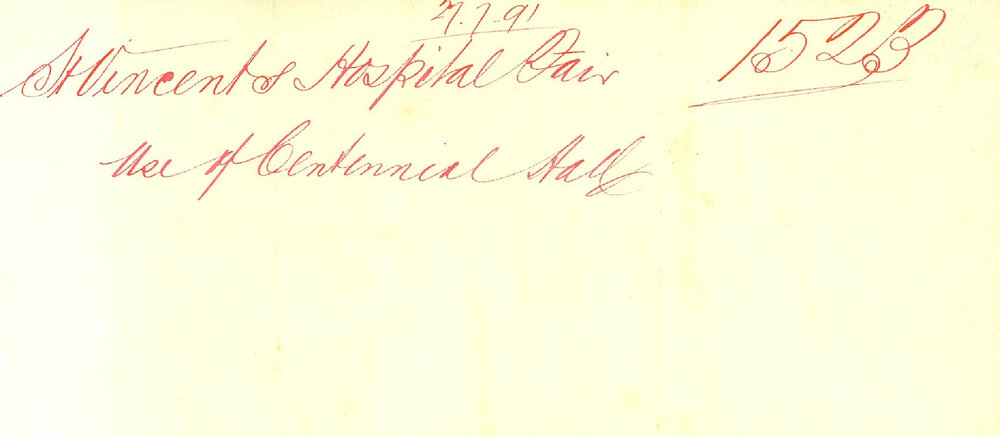 1523
St Vincents Hospital Fair
Use of Centennial Hall